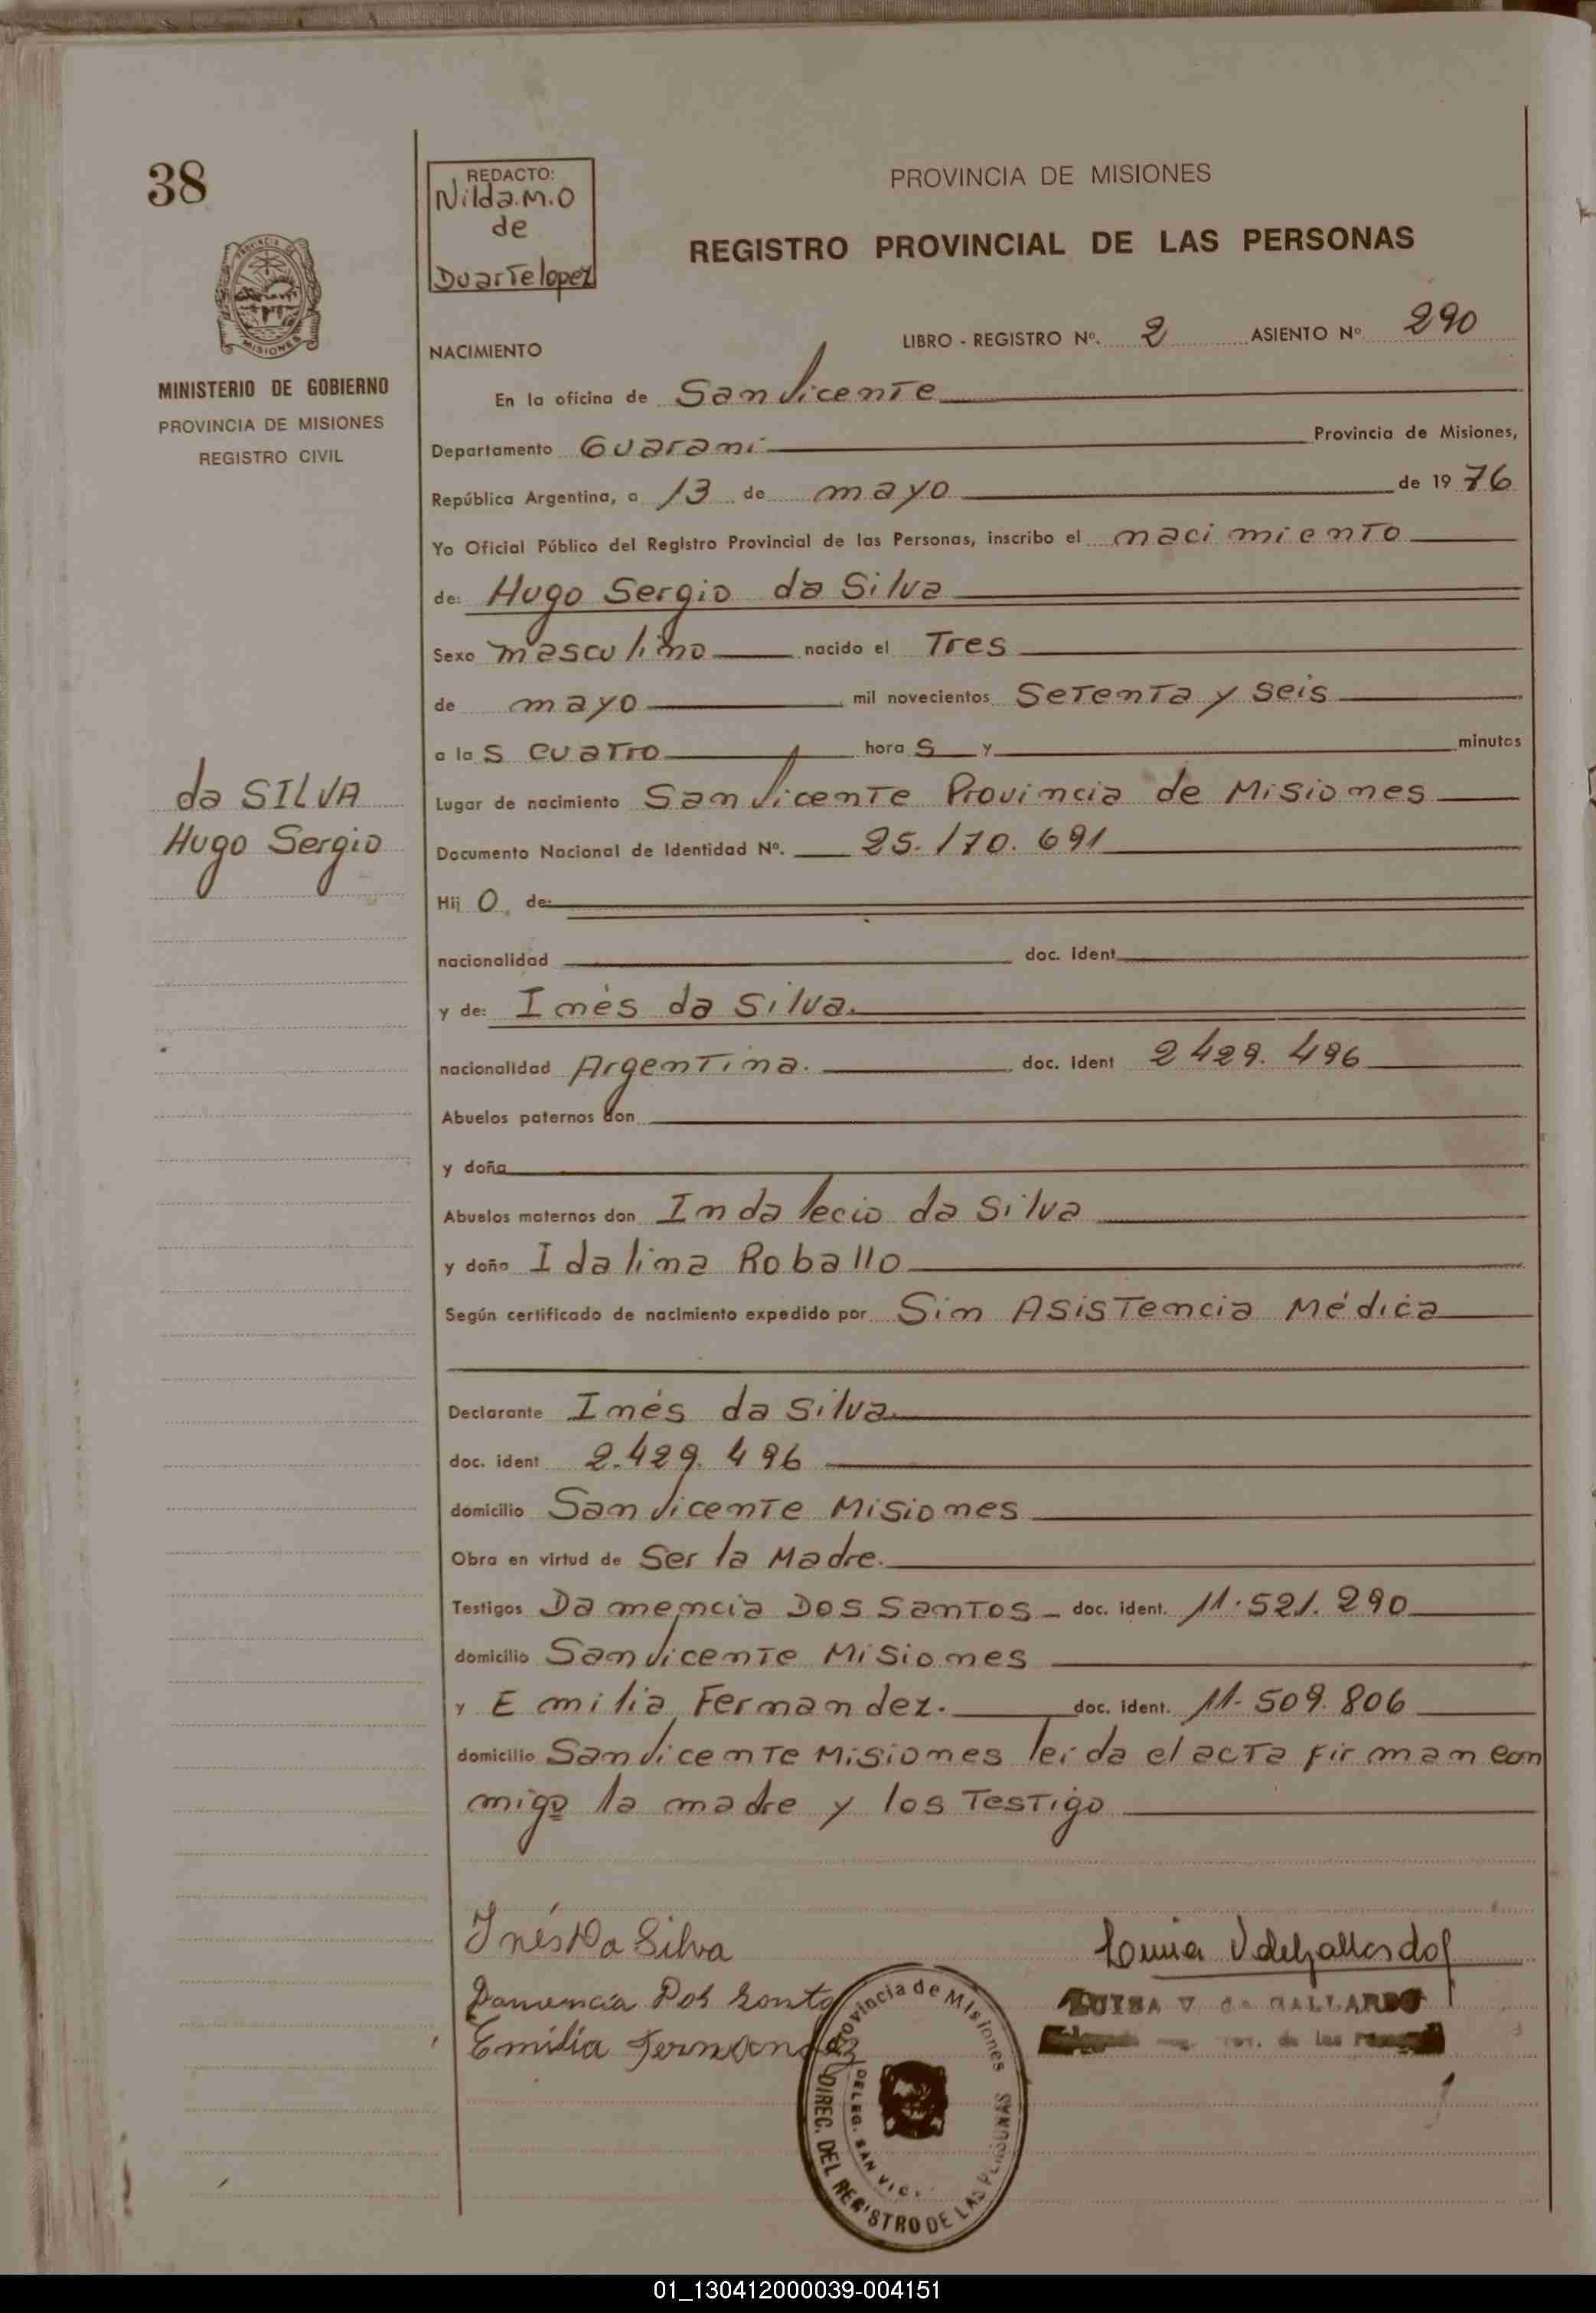 38
REDACTO:
Nilda.M.O
de
Duarte lopez
PROVINCIA DE MISIONES
REGISTRO PROVINCIAL DE LAS PERSONAS
PROVINCIA DE
MISIONES
MINISTERIO DE GOBIERNO
PROVINCIA DE MISIONES
REGISTRO CIVIL
NACIMIENTO
LIBRO - REGISTRO Nº. 2 ASIENTO Nº 290
En la oficina de San Vicente
Departamento Guarani Provincia de Misiones,
República Argentina, a 13 de mayo de 19 76
Yo Oficial Público del Registro Provincial de las Personas, inscribo el nacimiento
de: Hugo Sergio da Silva
Sexo masculino nacido el Tres
de mayo mil novecientos Setenta y Seis
a las cuatro horas y minutos
da SILVA
Hugo Sergio
Lugar de nacimiento San Vicente Provincia de Misiones
Documento Nacional de Identidad Nº. 25.170.691
Hij o de:
nacionalidad doc. ident
y de: Inés da Silva.
nacionalidad Argentina. doc. ident 2429.496
Abuelos paternos don
y doña
Abuelos maternos don Indalecio da Silva
y doña Idalina Roballo
Según certificado de nacimiento expedido por Sin Asistencia Médica
Declarante Inés da Silva.
doc. ident 2.429.496
domicilio San Vicente Misiones
Obra en virtud de Ser la Madre.
Testigos Damencia Dos Santos doc. ident. 11.521.290
domicilio San Vicente Misiones
y Emilia Fernandez. doc. ident. 11.509.806
domicilio San Vicente Misiones leída el acta firman con
migo la madre y los Testigo
Inés Da Silva
Damencia Dos Santo
Emilia Fernandez
LUISA V. de GALLARDO
de las
Provincia de Misiones
DIREC. DEL REGISTRO DE LAS PERSONAS
DELEG. SAN VIC.
01_130412000039-004151